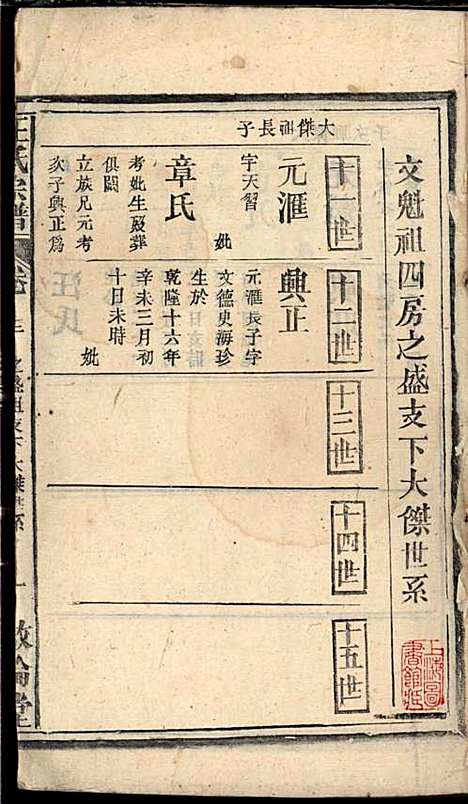 文魁祖四房之盛支下大傑世系
上海圖書館藏
十一世
十二世
十三世
十四世
十五世
大傑祖長子
元滙
字天習
妣
章氏
考妣生殁葬
俱闕
立族兄元考
次子興正爲
興正
元滙長子字
文德史海珍
生於
乾隆十六年
辛未三月初
十日未時
妣
氏宗譜
三
之盛祖支下大傑世系
一
敦倫堂